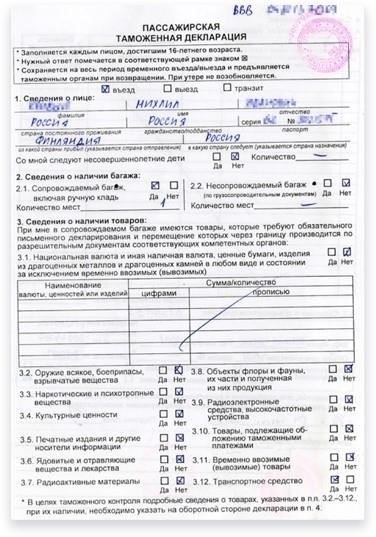 ВВВ
ПАССАЖИРСКАЯ
ТАМОЖЕННАЯ ДЕКЛАРАЦИЯ
* Заполняется каждым лицом, достигшим 16-летнего возраста.
* Нужный ответ помечается в соответствующей рамке знаком ☒
* Сохраняется на весь период временного въезда/выезда и предъявляется
таможенным органам при возвращении. При утере не возобновляется.
☒ въезд ☐ выезд ☐ транзит
1. Сведения о лице:
МИХАИЛ
фамилия имя отчество
РОССИЯ РОССИЯ серия №
страна постоянного проживания гражданство/подданство паспорт
ФИНЛЯНДИЯ РОССИЯ
из какой страна прибыл (указывается страна отправления) в какую страну следует (указывается страна назначения)
Со мной следуют несовершеннолетние дети ☐ Да ☒ Нет Количество —
2. Сведения о наличии багажа:
2.1. Сопровождаемый багаж, включая ручную кладь ☒ Да ☐ Нет
Количество мест 1
2.2. Несопровождаемый багаж ☐ Да ☒ Нет
(по грузосопроводительным документам)
Количество мест —
3. Сведения о наличии товаров:
При мне в сопровождаемом багаже имеются товары, которые требуют обязательного
письменного декларирования и перемещение которых через границу производится по
разрешительным документам соответствующих компетентных органов:
3.1. Национальная валюта и иная наличная валюта, ценные бумаги, изделия ☐ ☒
из драгоценных металлов и драгоценных камней в любом виде и состоянии Да Нет
за исключением временно ввозимых (вывозимых)
Наименование валюты, ценностей или изделий
Сумма/количество
цифрами прописью
3.2. Оружие всякое, боеприпасы, взрывчатые вещества ☐ Да ☒ Нет
3.3. Наркотические и психотропные вещества ☐ Да ☒ Нет
3.4. Культурные ценности ☐ Да ☒ Нет
3.5. Печатные издания и другие носители информации ☐ Да ☒ Нет
3.6. Ядовитые и отравляющие вещества и лекарства ☐ Да ☒ Нет
3.7. Радиоактивные материалы ☐ Да ☒ Нет
3.8. Объекты флоры и фауны, их части и полученная из них продукция ☐ Да ☒ Нет
3.9. Радиоэлектронные средства, высокочастотные устройства ☐ Да ☒ Нет
3.10. Товары, подлежащие обложению таможенными платежами ☐ Да ☒ Нет
3.11. Временно ввозимые (вывозимые) товары ☐ Да ☒ Нет
3.12. Транспортное средство ☒ Да ☐ Нет
* В целях таможенного контроля подробные сведения о товарах, указанных в п.п. 3.2.–3.12.,
при их наличии, необходимо указать на оборотной стороне декларации в п. 4.